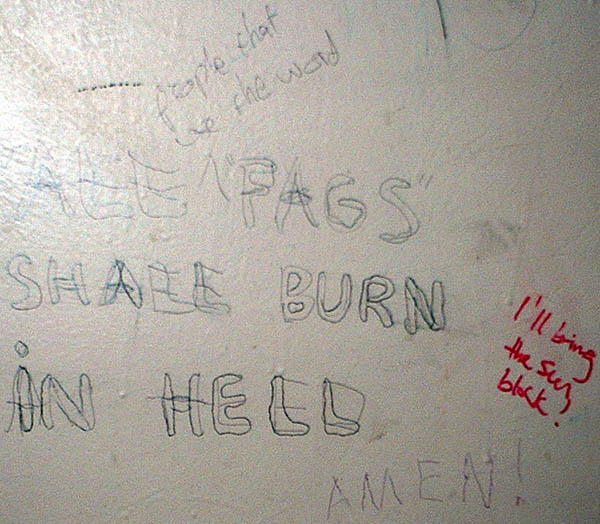 people that
use the word
ALL "FAGS"
SHALL BURN
iN HELL
I'll bring
the sun
block!
AMEN!